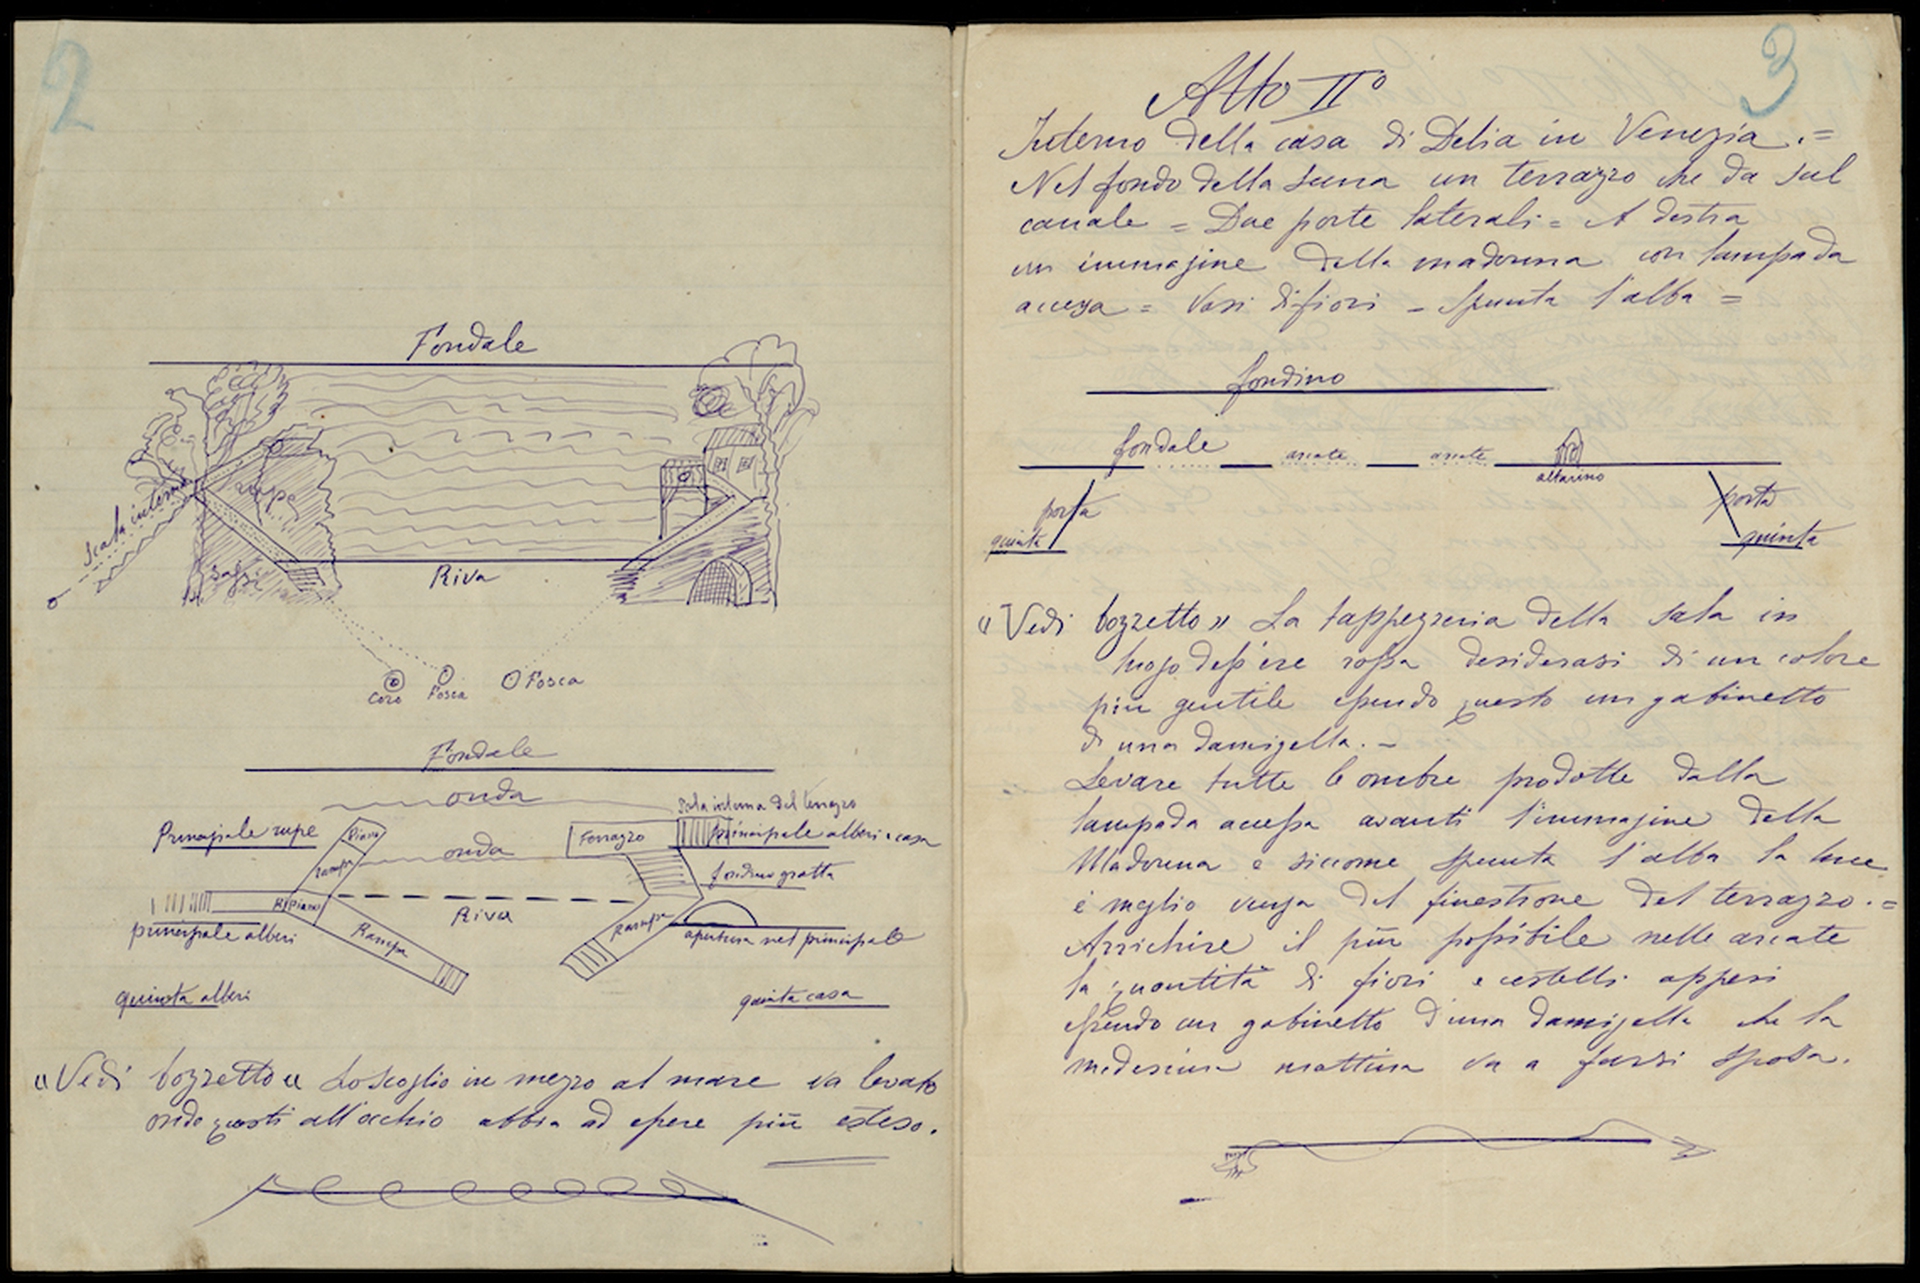 2
Fondale
scala interna
rampa
Riva
Coro
Fosca
Fosca
Fondale
onda
scala interna del terrazzo
Principale rupe
Piano
Terrazzo
principale alberi e casa
rampa
onda
fondino grotta
Riva
Rampa
rampa
principale alberi
apertura nel principale
quinta alberi
quinta casa
"Vedi bozzetto" Lo scoglio in mezzo al mare va levato
onde questi all'occhio abbia ad essere più esteso.
3
Atto II°
Interno della casa di Delia in Venezia .=
Nel fondo della scena un terrazzo che da sul
canale = Due porte laterali = A destra
un immagine della madonna con lampada
accesa = Vasi di fiori - Spunta l'alba =
fondino
fondale
arcate
arcate
altarino
porta
quinta
porta
quinta
"Vedi bozzetto" La tappezzeria della sala in
luogo dess'ere rossa desiderasi di un colore
più gentile essendo questo un gabinetto
di una damigella. -
Levare tutte le ombre prodotte dalla
lampada accessa avanti l'immagine della
Madonna e siccome spunta l'alba la luce
è meglio venga del finestrone del terrazzo .=
Arrichire il più possibile nelle arcate
la quantità di fiori e cestelli appesi
essendo un gabinetto d'una damigella che la
medesima mattina va a farsi sposa.